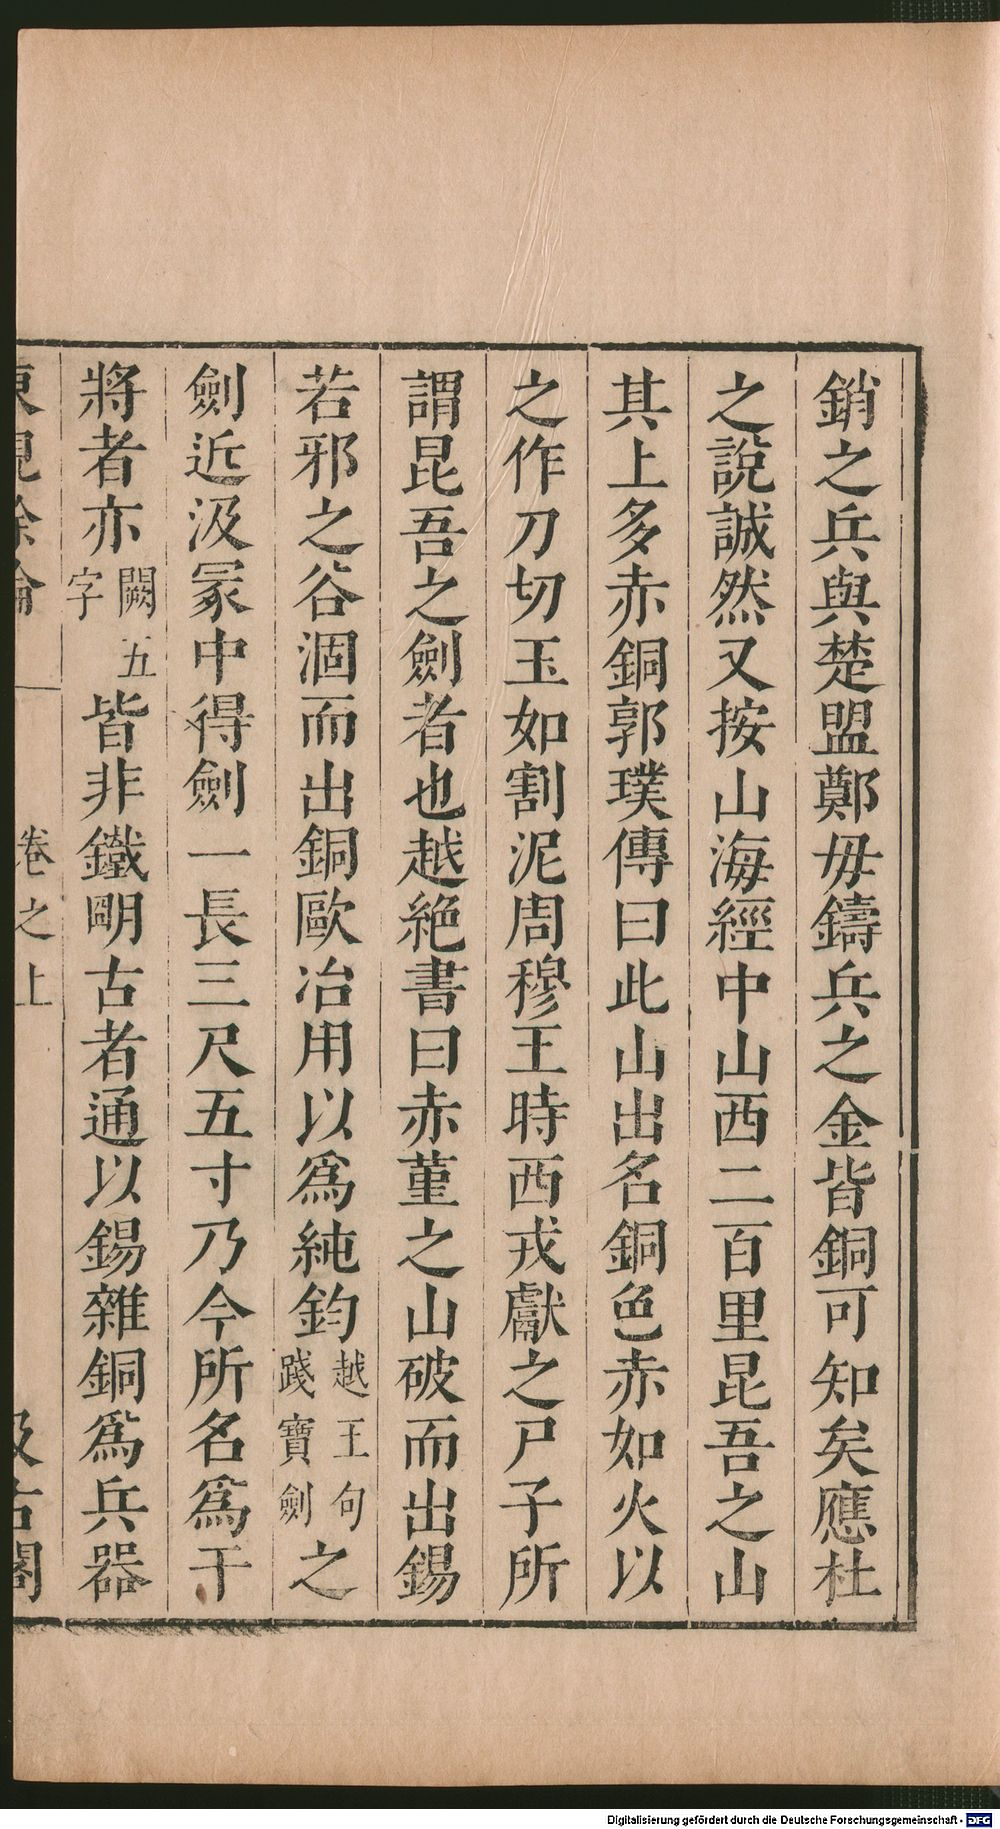 銷之兵與楚盟鄭毋鑄兵之金皆銅可知矣應杜
之說誠然又按山海經中山西二百里昆吾之山
其上多赤銅郭璞傳曰此山出名銅色赤如火以
之作刀切玉如割泥周穆王時西戎獻之尸子所
謂昆吾之劍者也越絕書曰赤堇之山破而出錫
若邪之谷涸而出銅歐冶用以爲純鈞越王句踐寶劍之
劍近汲冡中得劍一長三尺五寸乃今所名爲干
將者亦闕五字皆非鐵明古者通以錫雜銅爲兵器
東觀餘論 卷之上 汲古閣
Digitalisierung gefördert durch die Deutsche Forschungsgemeinschaft - DFG